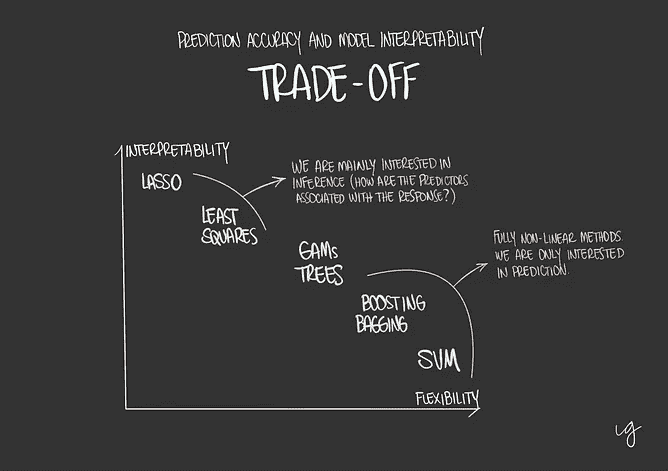 PREDICTION ACCURACY AND MODEL INTERPRETABILITY
TRADE-OFF
INTERPRETABILITY
LASSO
WE ARE MAINLY INTERESTED IN
INFERENCE (HOW ARE THE PREDICTORS
ASSOCIATED WITH THE RESPONSE?)
LEAST
SQUARES
GAMs
TREES
FULLY NON-LINEAR METHODS.
WE ARE ONLY INTERESTED
IN PREDICTION.
BOOSTING
BAGGING
SVM
FLEXIBILITY
ig